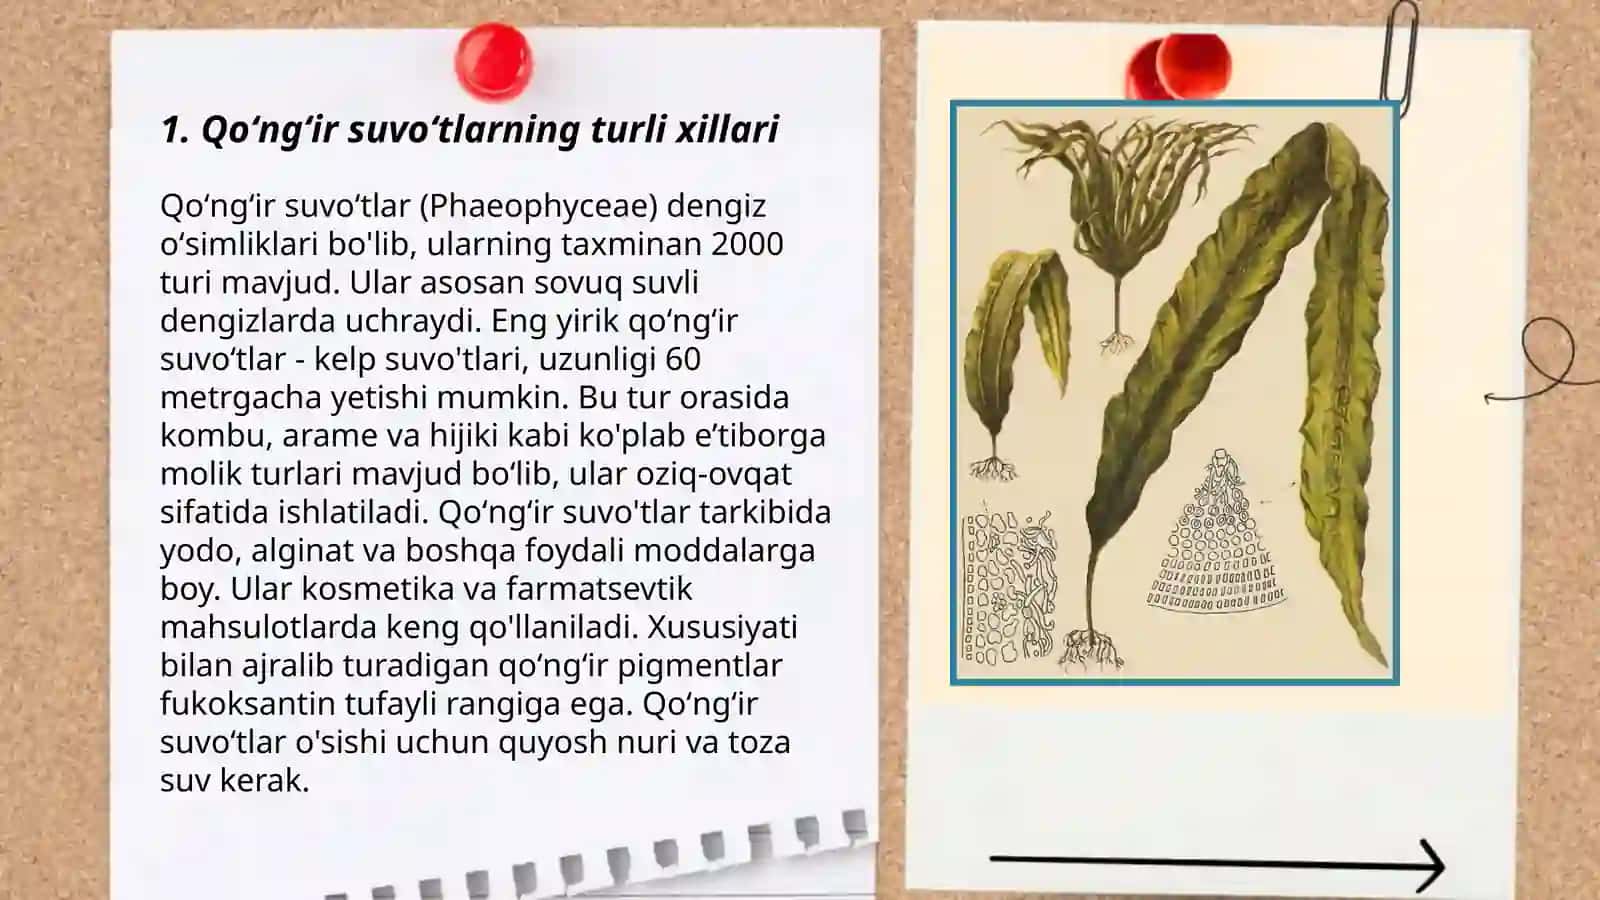 1. Qo‘ng‘ir suvo‘tlarning turli xillari
Qo‘ng‘ir suvo‘tlar (Phaeophyceae) dengiz
o‘simliklari bo'lib, ularning taxminan 2000
turi mavjud. Ular asosan sovuq suvli
dengizlarda uchraydi. Eng yirik qo‘ng‘ir
suvo‘tlar - kelp suvo'tlari, uzunligi 60
metrgacha yetishi mumkin. Bu tur orasida
kombu, arame va hijiki kabi ko'plab e’tiborga
molik turlari mavjud bo‘lib, ular oziq-ovqat
sifatida ishlatiladi. Qo‘ng‘ir suvo'tlar tarkibida
yodo, alginat va boshqa foydali moddalarga
boy. Ular kosmetika va farmatsevtik
mahsulotlarda keng qo'llaniladi. Xususiyati
bilan ajralib turadigan qo‘ng‘ir pigmentlar
fukoksantin tufayli rangiga ega. Qo‘ng‘ir
suvo‘tlar o'sishi uchun quyosh nuri va toza
suv kerak.